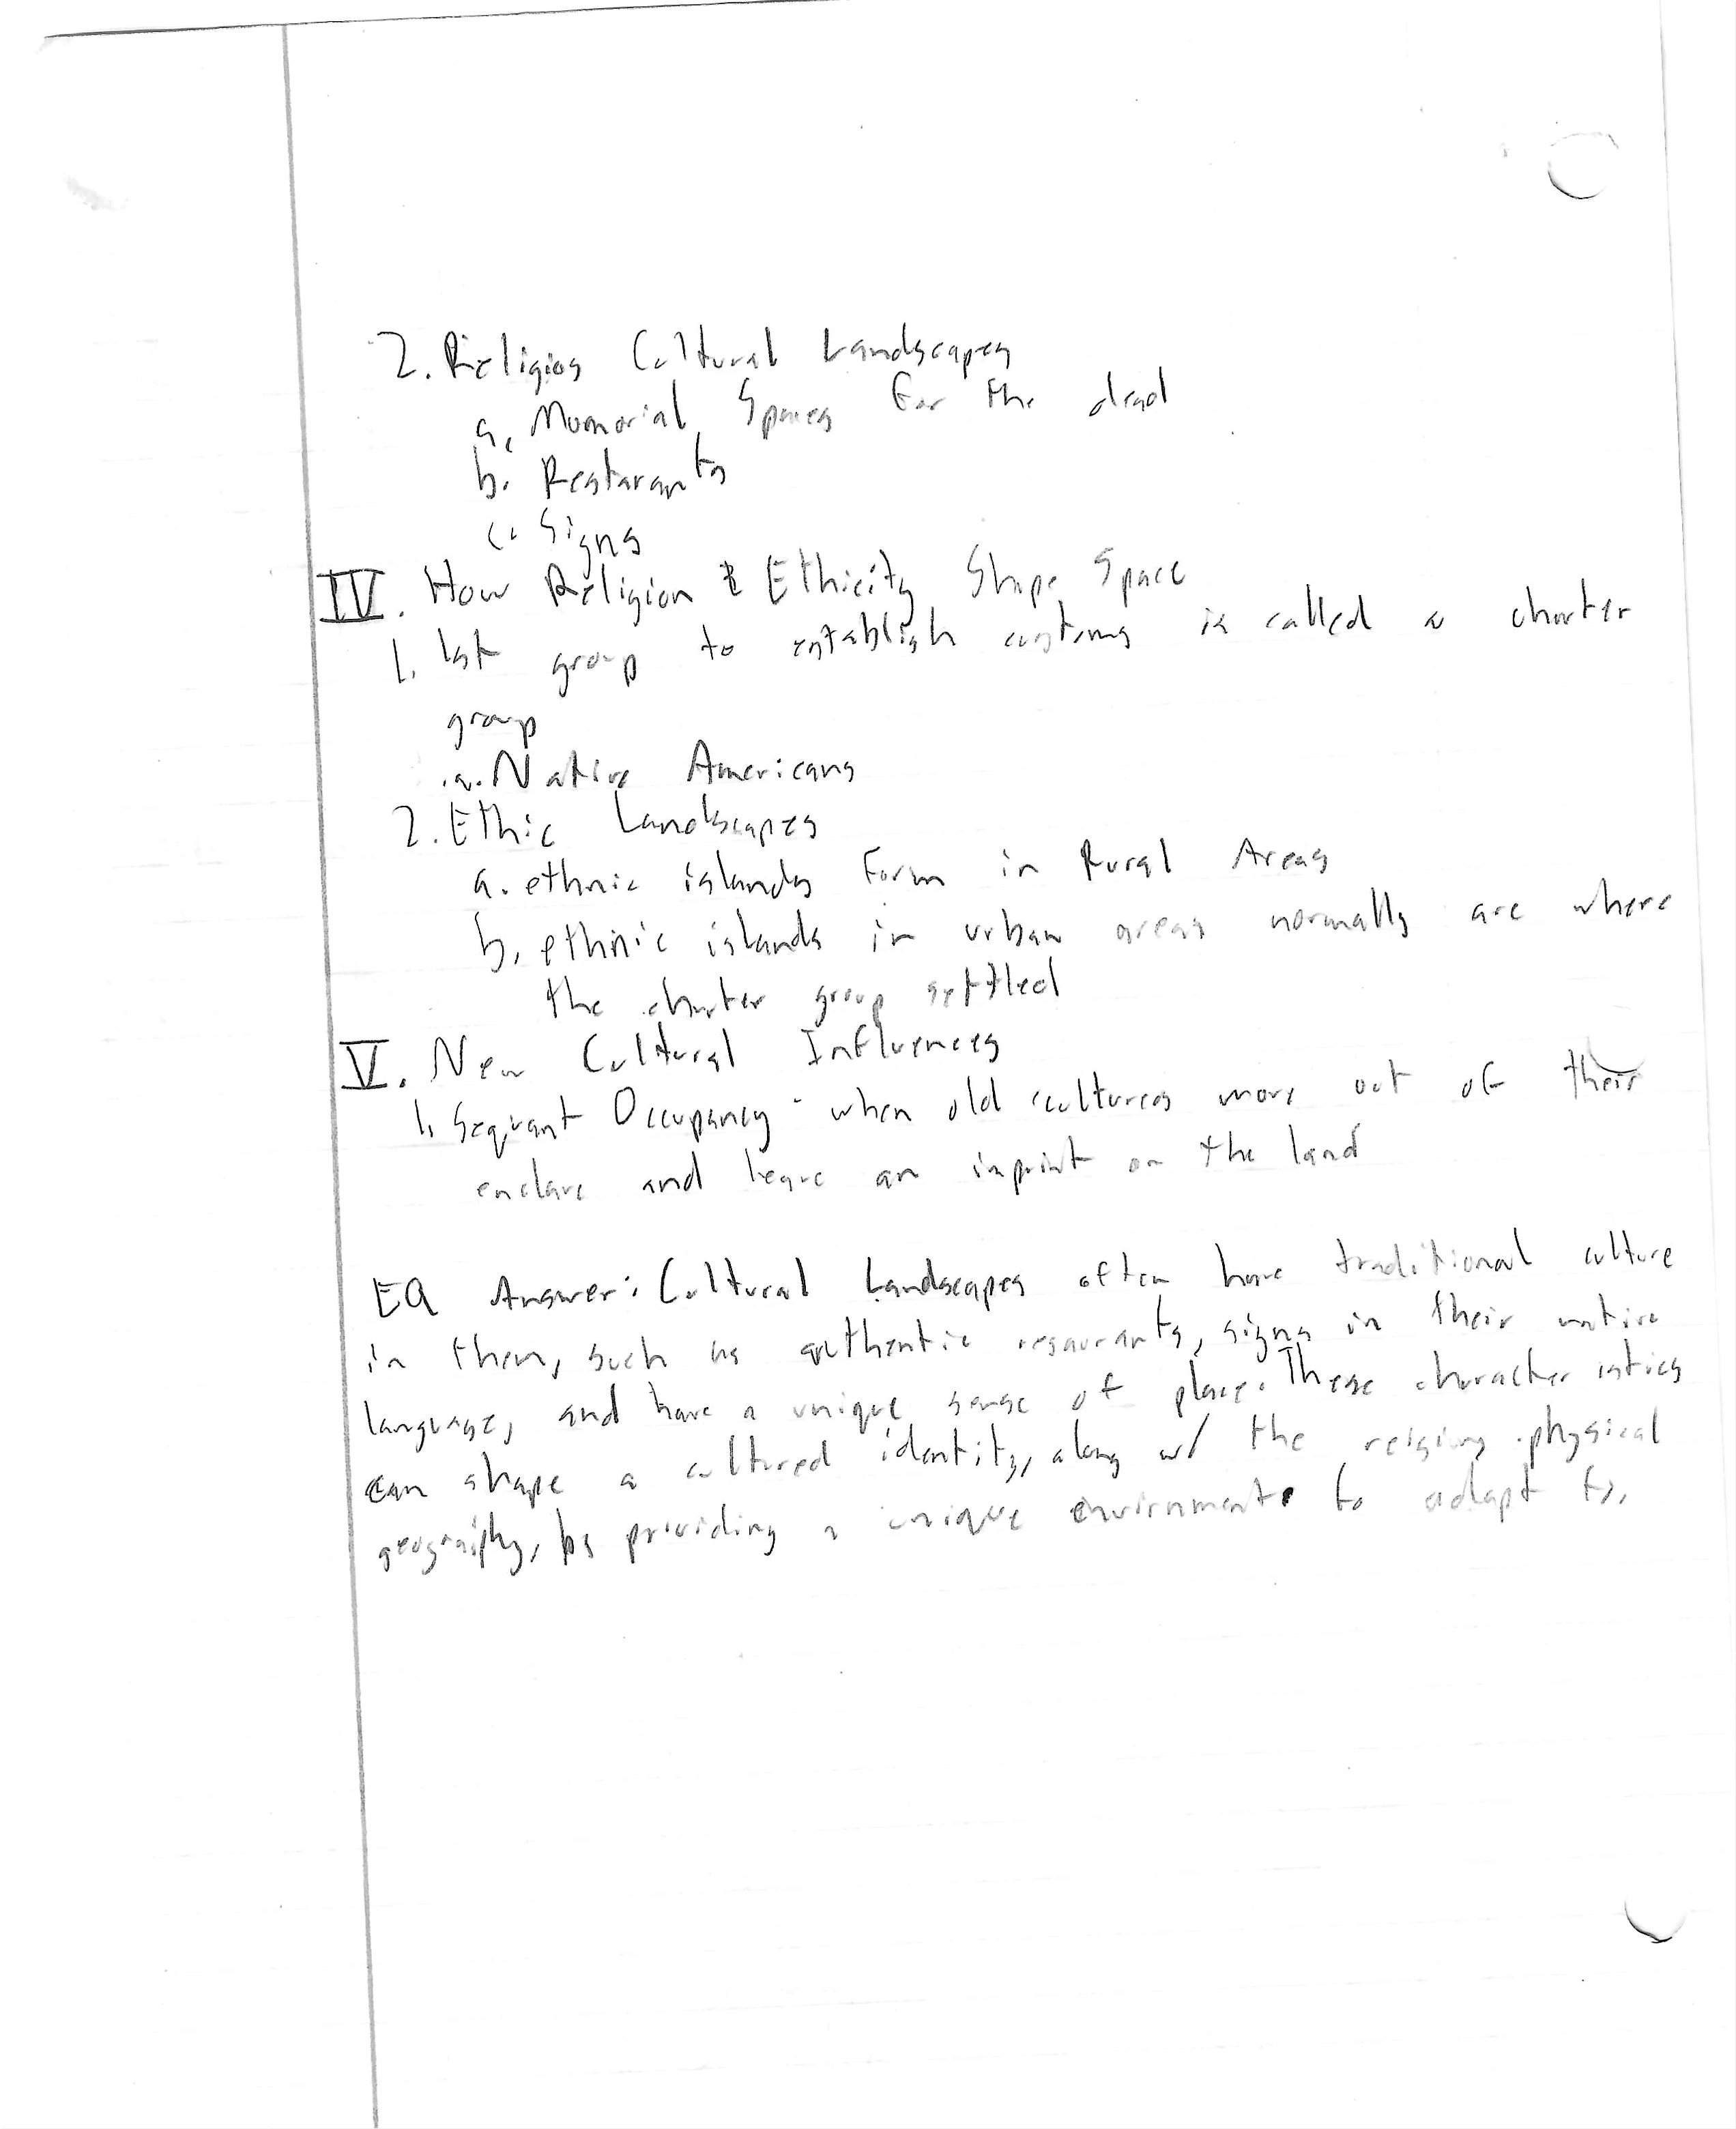 2. Religios Cultural Landscapes
a. Momorial Spaces for the dead
b. Restarants
c. Signs
IV. How Religion & Ethicity Shape Space
1. 1st group to establish customs is called a charter
group
a. Native Americans
2. Ethic Landscapes
a. ethnic islands form in Rural Areas
b. ethnic islands in urban areas normally are where
the charter group settled
V. New Cultural Influences
1. Sequant Occupancy - when old cultures move out of their
enclave and leave an inprint on the land
EQ Answer: Cultural Landscapes often have traditional culture
in them, such as authentic resaurants, signs in their native
language, and have a unique sense of place. These characteristics
can shape a cultured identity, along w/ the physical
geography, by providing a unique environment to adapt to.